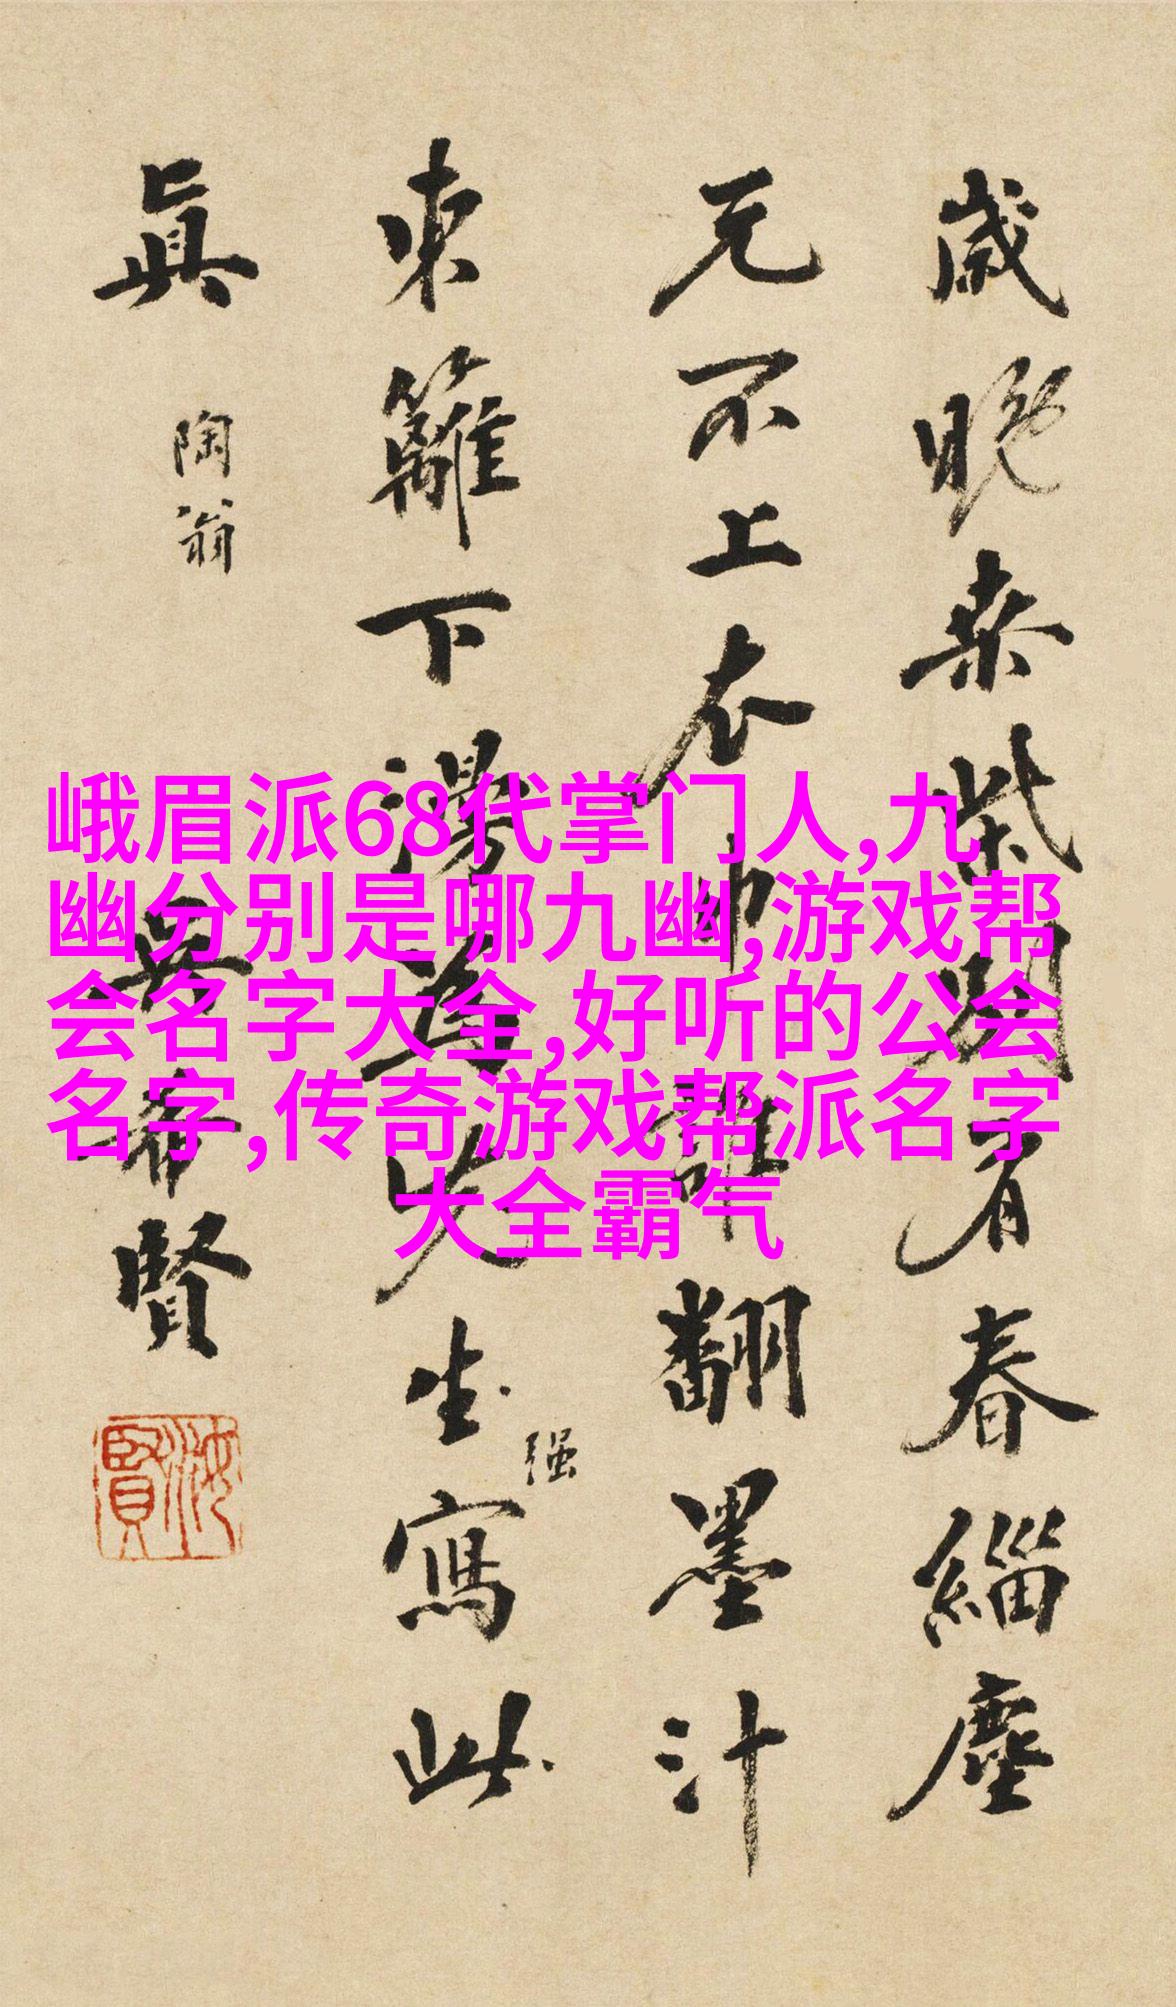 歲晚柴關有春緇塵
元不上衣巾誰翻墨汁
東籬下為先生寫此
强
眞
陶翁
吳希賢
汝賢
峨眉派68代掌门人,九
幽分别是哪九幽,游戏帮
会名字大全,好听的公会
名字,传奇游戏帮派名字
大全霸气